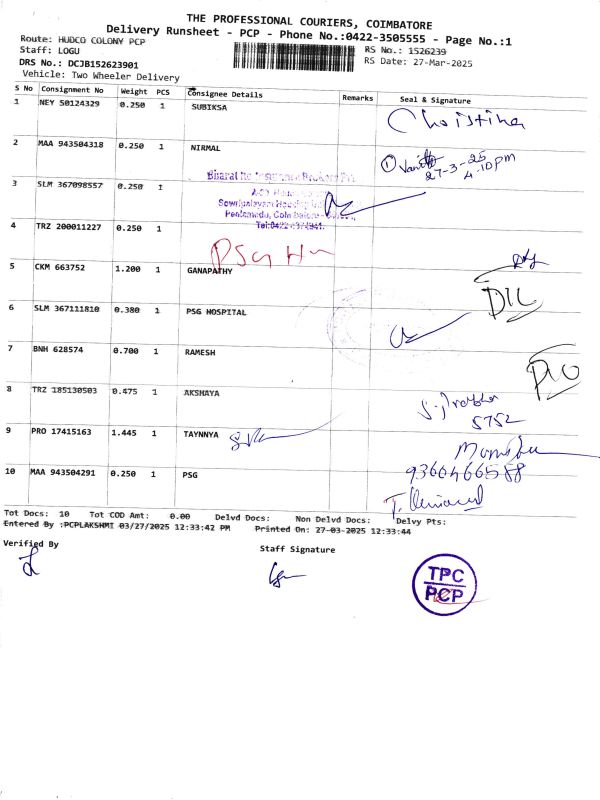 THE PROFESSIONAL COURIERS, COIMBATORE
Delivery Runsheet - PCP - Phone No.:0422-3505555 - Page No.:1
Route: HUDCO COLONY PCP
RS No.: 1526239
Staff: LOGU
RS Date: 27-Mar-2025
DRS No.: DCJB152623901
Vehicle: Two Wheeler Delivery
S No Consignment No Weight PCS Consignee Details Remarks Seal & Signature
1 NEY 50124329 0.250 1 SUBIKSA
Christina
2 MAA 943504318 0.250 1 NIRMAL
1 27-3-25
4.10pm
3 SLM 367098557 0.250 1
4 TRZ 200011227 0.250 1
PSG
5 CKM 663752 1.200 1 GANAPATHY
6 SLM 367111810 0.380 1 PSG HOSPITAL
7 BNH 628574 0.700 1 RAMESH
8 TRZ 185130503 0.475 1 AKSHAYA
5752
9 PRO 17415163 1.445 1 TAYNNYA
9360466588
10 MAA 943504291 0.250 1 PSG
Tot Docs: 10 Tot COD Amt: 0.00 Delvd Docs: Non Delvd Docs: Delvy Pts:
Entered By :PCPLAKSHMI 03/27/2025 12:33:42 PM Printed On: 27-03-2025 12:33:44
Verified By
Staff Signature
TPC
PCP